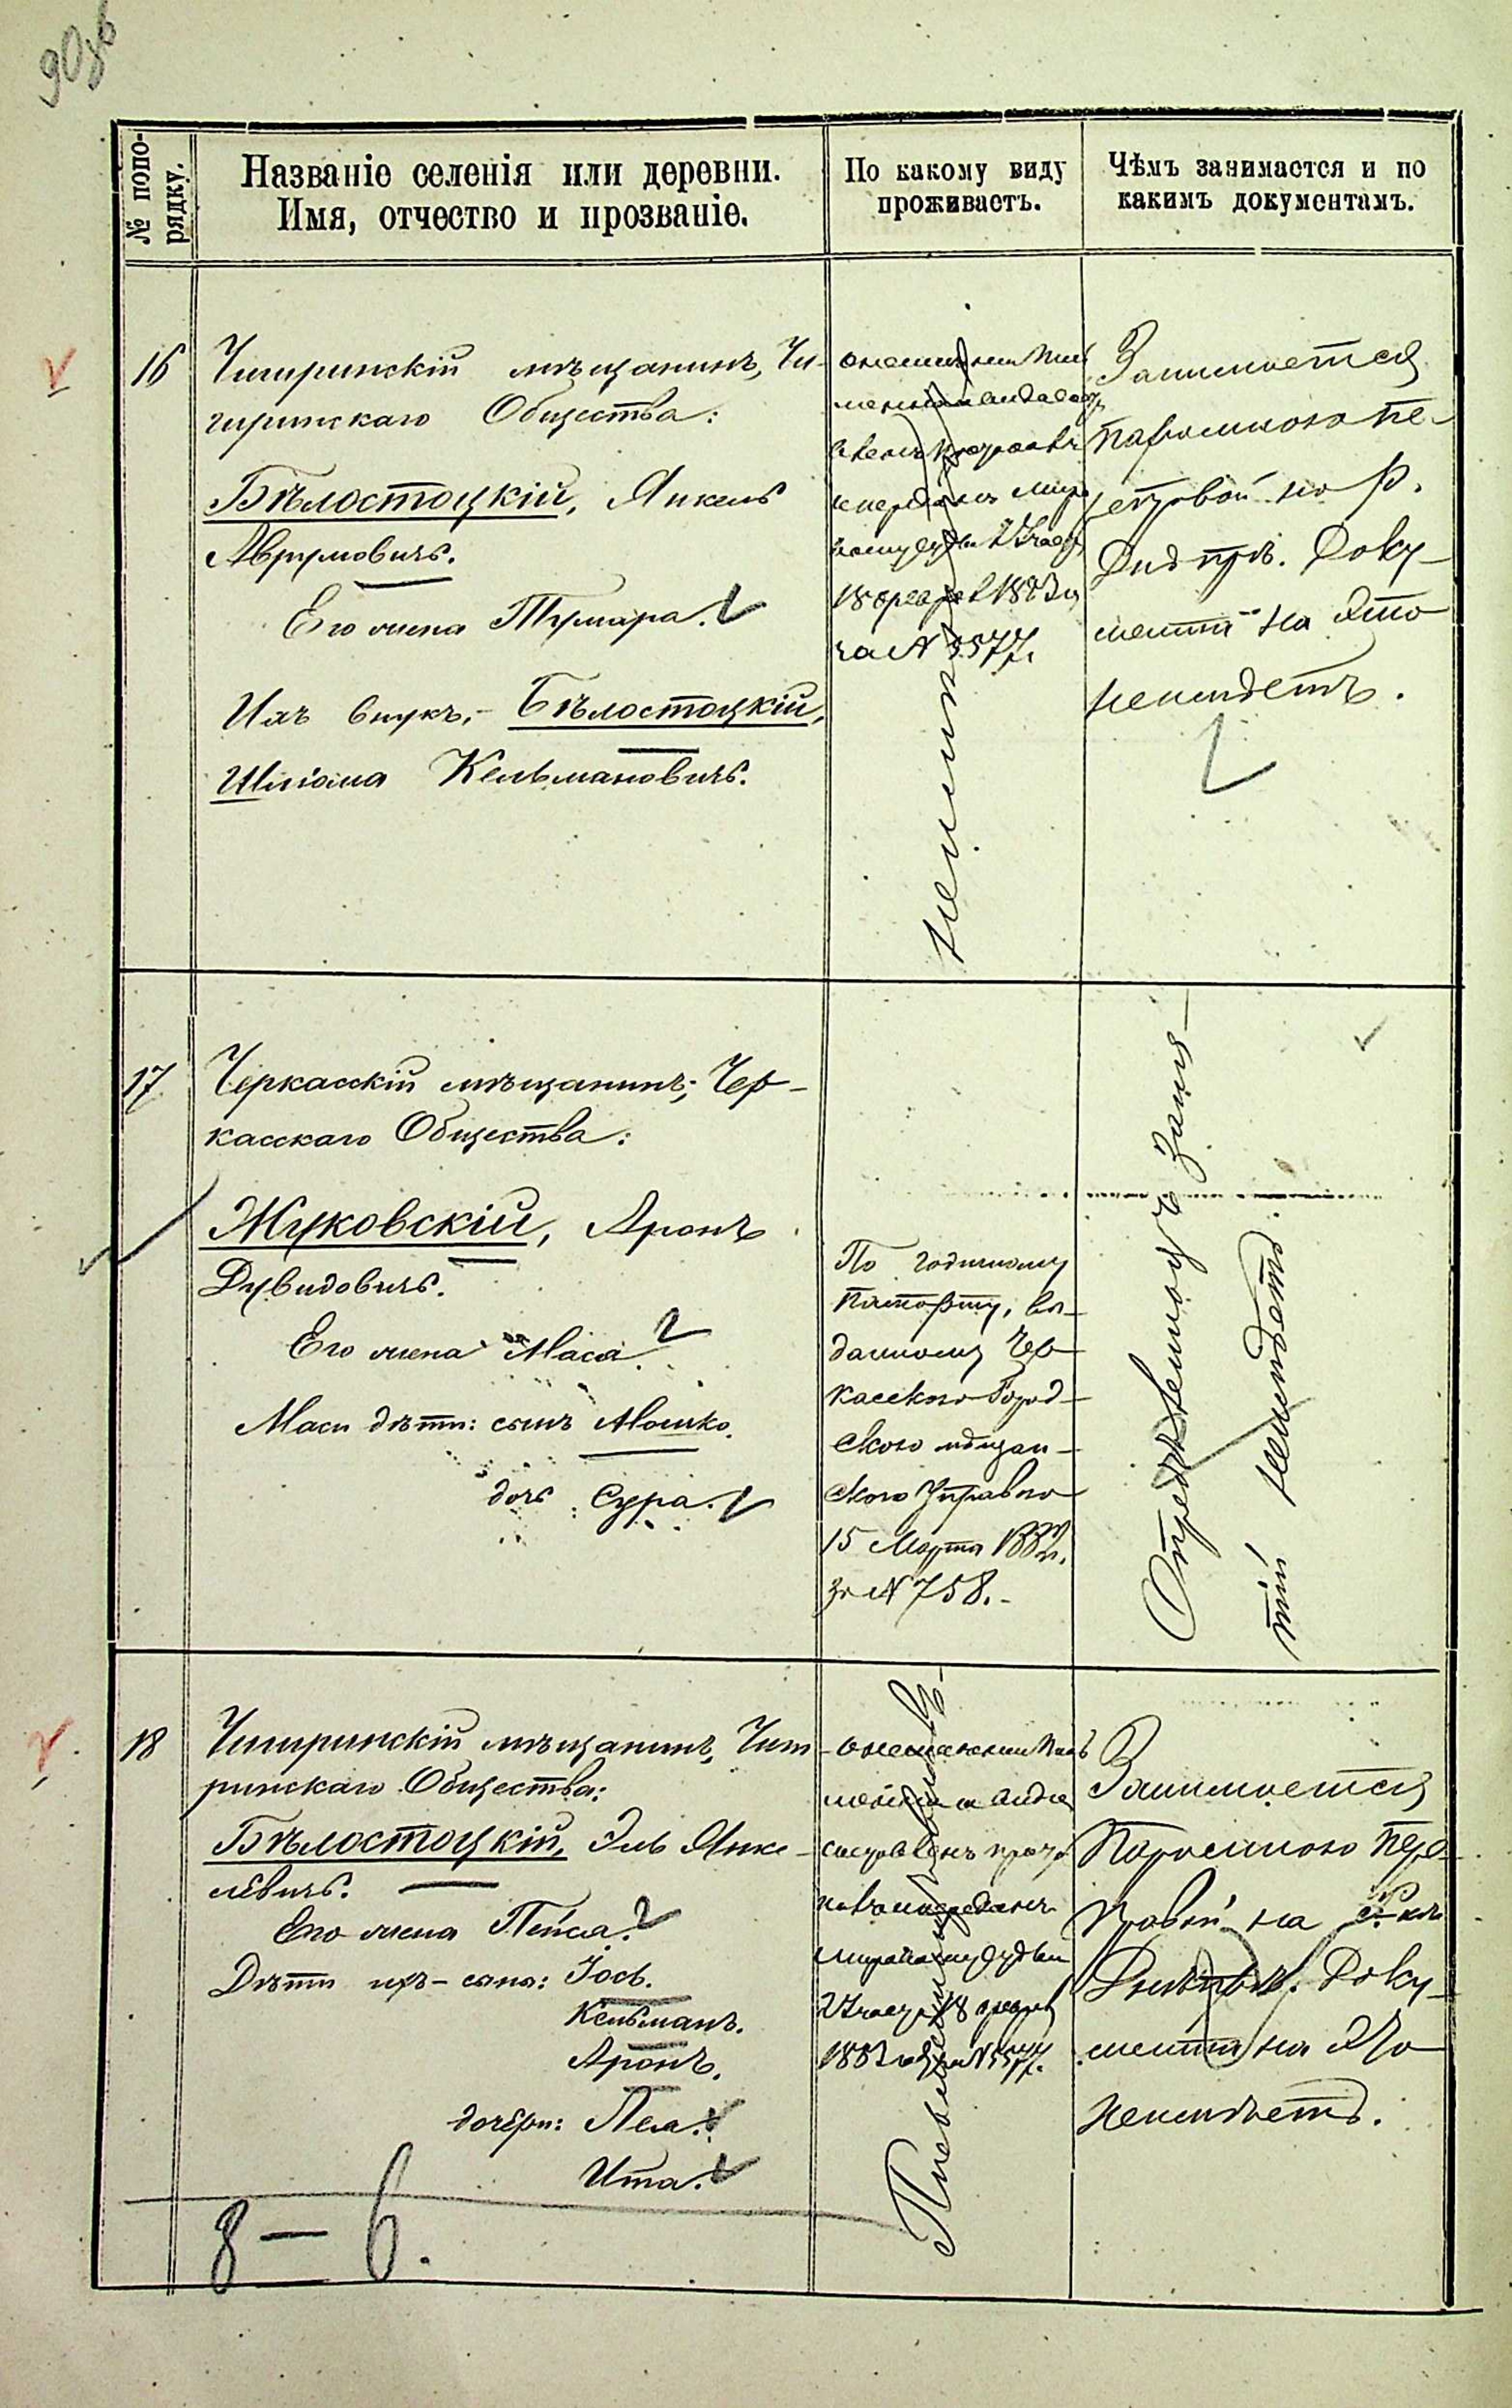 90 об
№ попо-
рядку.
Названіе селенія или деревни.
Имя, отчество и прозваніе.
По какому виду
проживаетъ.
Чѣмъ занимается и по
какимъ документамъ.
16
Чигиринскій мѣщанинъ, Чи-
гиринскаго Общества:
Бѣлостоцкій, Янкель
Аврумовичъ.
Его жена Тумара.
Ихъ внукъ,- Бѣлостоцкій,
Шліома Кельмановичъ.
18 февраля 1883 г
за № 5577.
Занимается
паромною пе-
реправой на р.
Днѣпрѣ. Доку-
мента на это
неимѣетъ.
17
Черкасскій мѣщанинъ; Чер-
касскаго Общества:
Жуковскій, Аронъ
Дувидовичъ.
Его жена Маса.
Масы дѣти: сынъ Мошко.
дочь Сура.
По годичному
паспорту, вы-
данному Чер-
касскою Город-
скою мѣщан-
скою Управою
15 Марта 1882 г.
за № 758.-
Опредѣленныхъ заня-
тій неимѣетъ
18
Чигиринскій мѣщанинъ, Чиги-
ринскаго Общества:
Бѣлостоцкій, Эль Янке-
левичъ.
Его жена Пейса.
Дѣти ихъ - сыны: Іось.
Кельманъ.
Аронъ.
дочери: Леа.
Ита.
18 февраля
1883 года № 5577.
Занимается
Паромною пере-
правой на р.
Днѣпръ. Доку-
мента на это
неимѣетъ.
8 — 6.